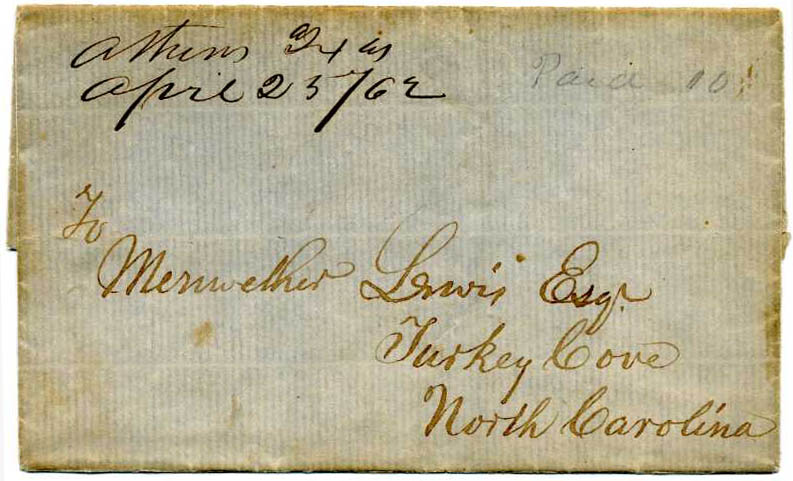 Athens Texas
April 25/62
Paid 10
To
Meriwether Lewis Esqr
Turkey Cove
North Carolina